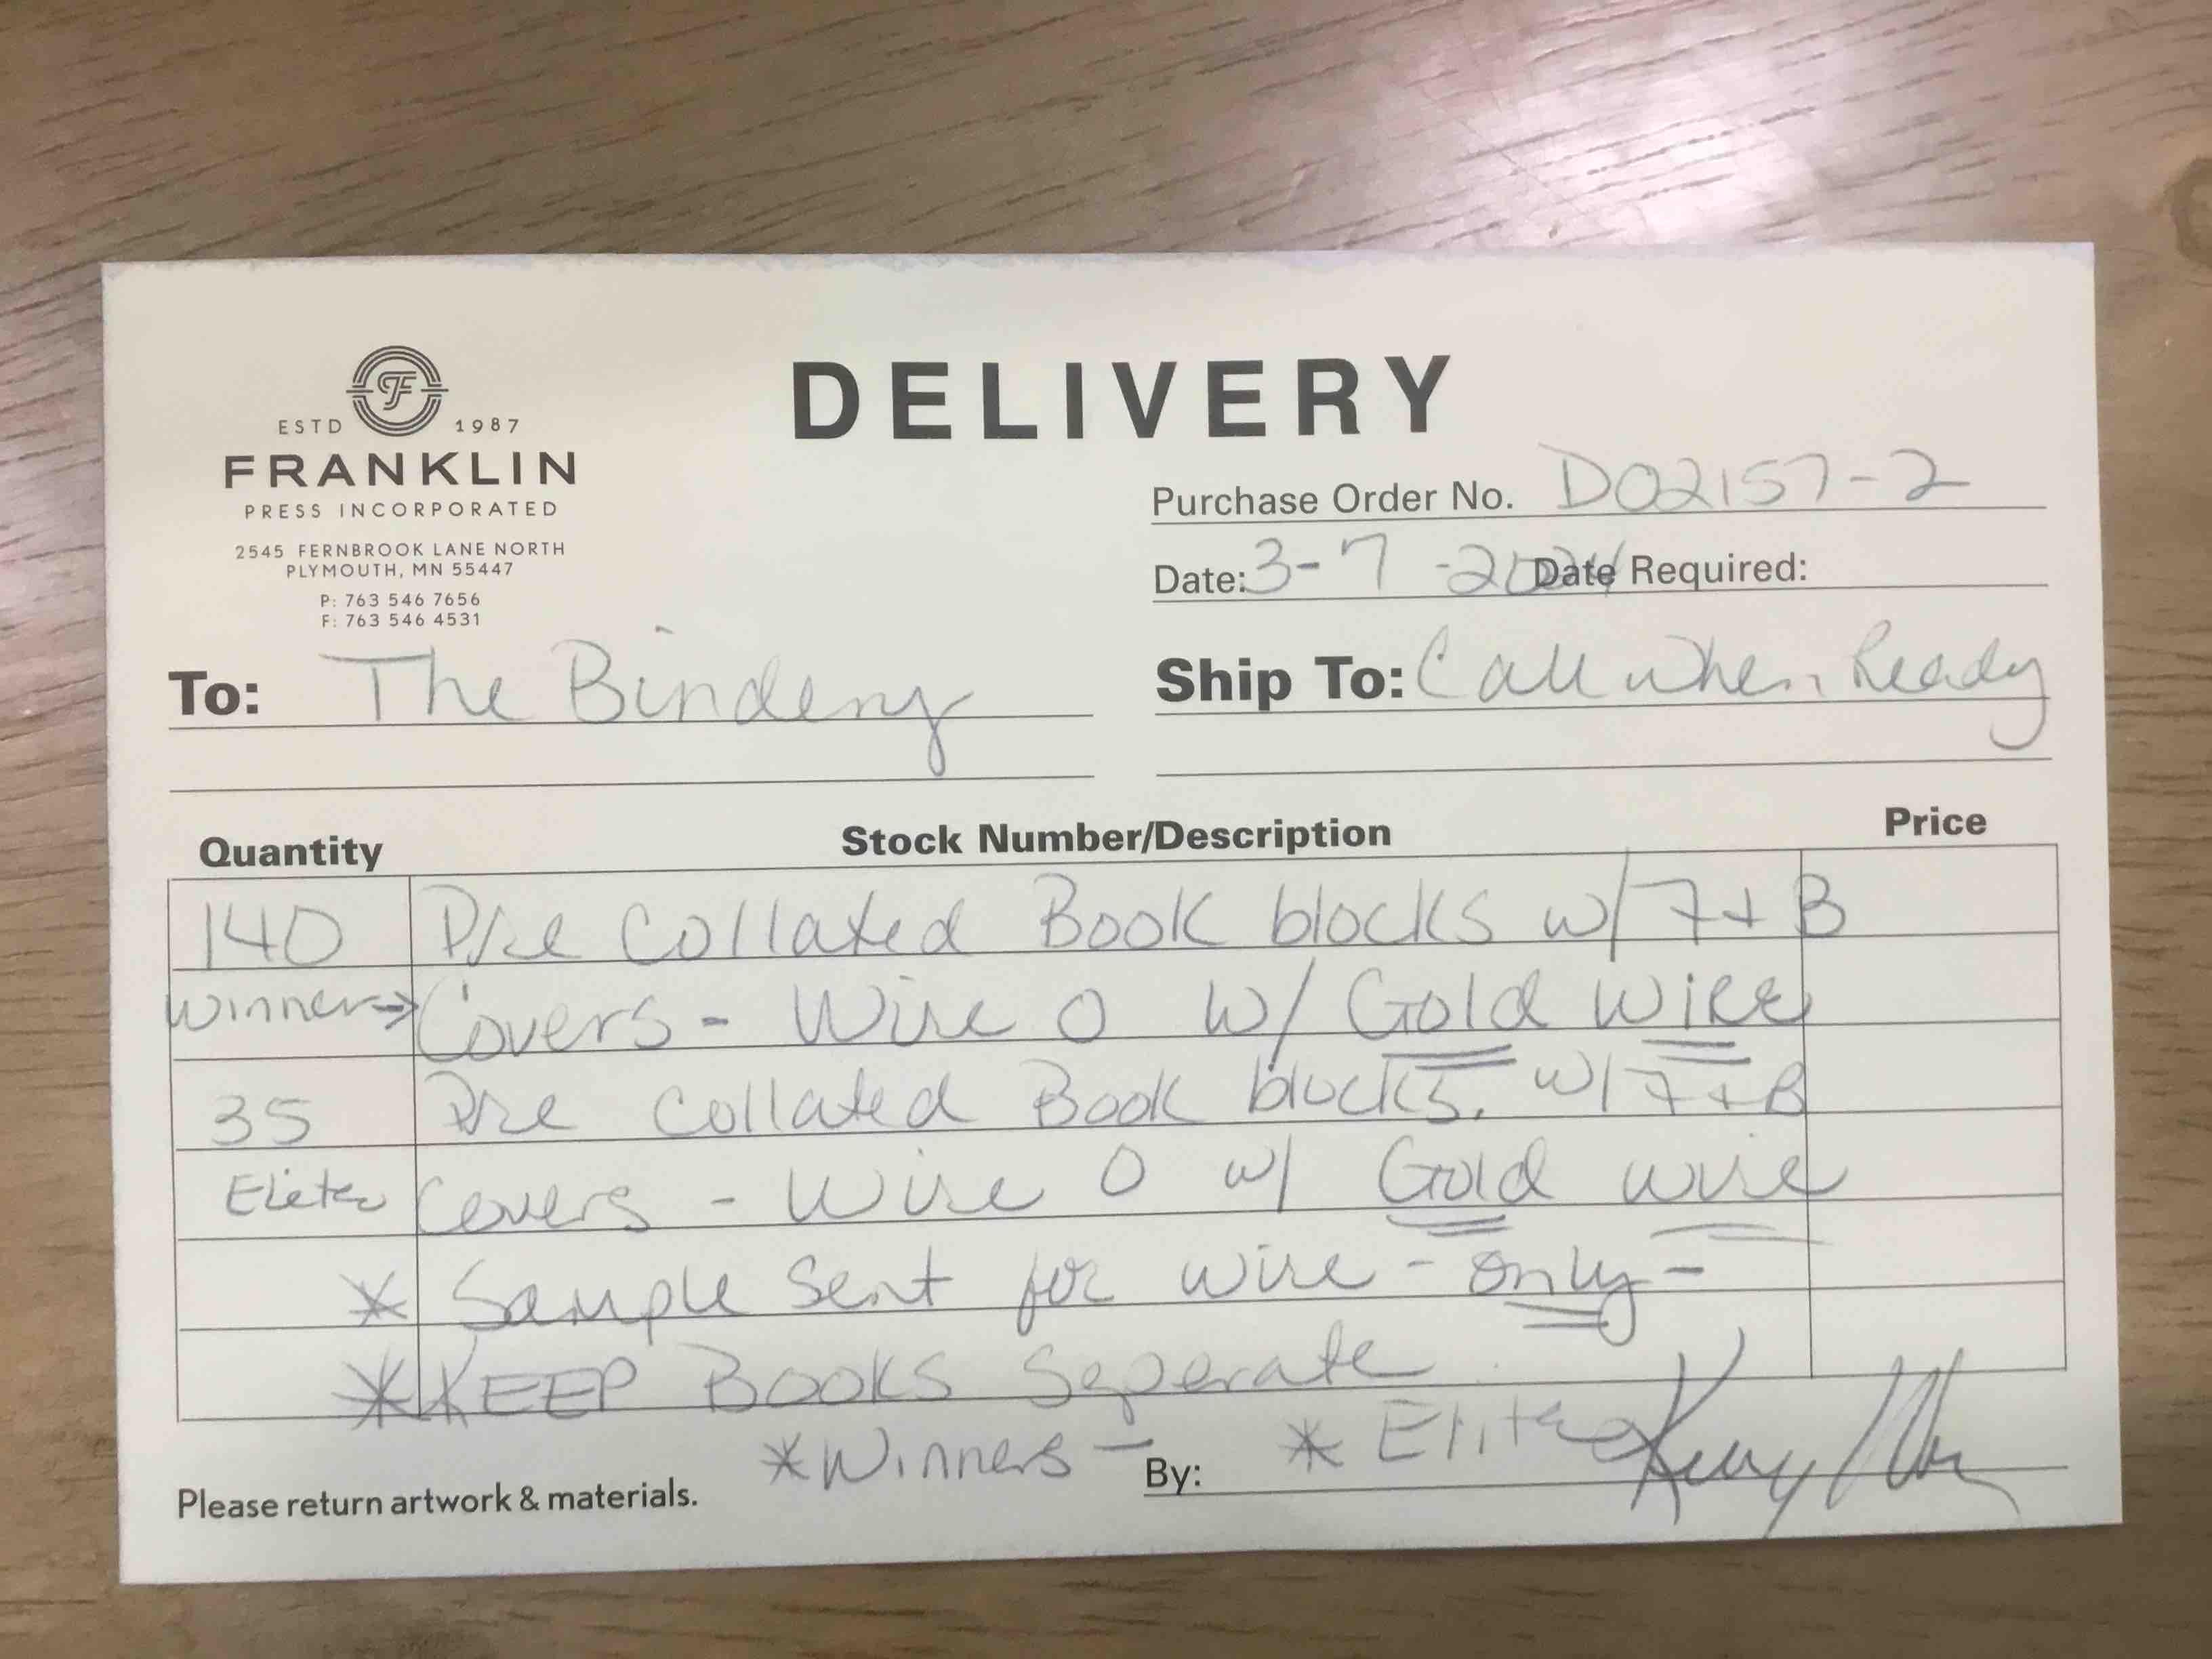 DELIVERY
ESTD 1987
FRANKLIN
PRESS INCORPORATED
2545 FERNBROOK LANE NORTH
PLYMOUTH, MN 55447
P: 763 546 7656
F: 763 546 4531
Purchase Order No. D02157-2
Date: 3-7-2024 Date Required:
To: The Bindery
Ship To: Call when Ready
Quantity Stock Number/Description Price
140 Pre Collated Book blocks w/ 7+B
Winner→ Covers - Wire O w/ Gold Wire
35 Pre Collated Book blocks. w/ 7+B
Elite Covers - Wire O w/ Gold wire
* Sample Sent for wire - only -
* KEEP Books Seperate
* Winners - * Elite
Please return artwork & materials.
By: